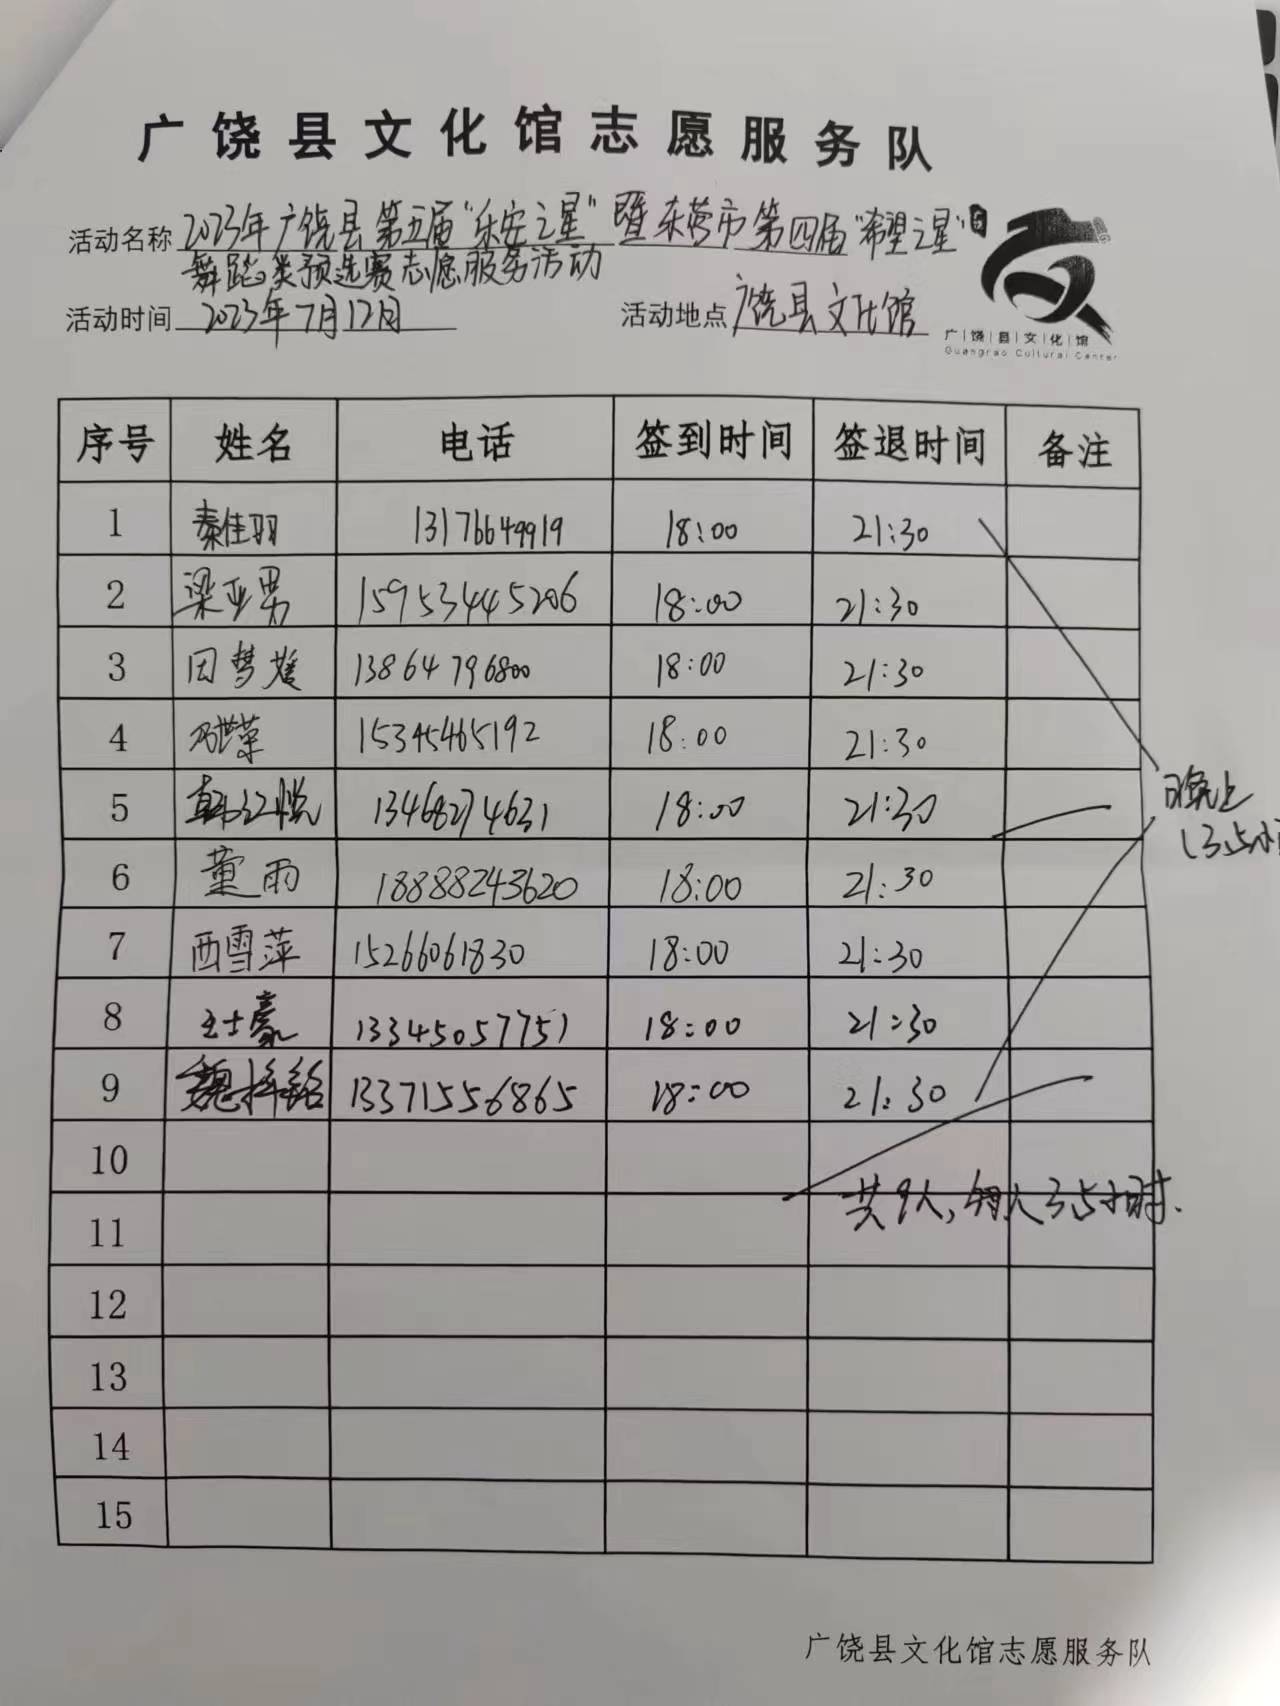 广饶县文化馆志愿服务队
活动名称 2023年广饶县第五届“乐安之星”暨东营市第四届“希望之星”
舞蹈类预选赛志愿服务活动
活动时间 2023年7月12日 活动地点 广饶县文化馆
广饶县文化馆
Guangrao Cultural Center
序号 姓名 电话 签到时间 签退时间 备注
1 秦佳羽 13176649919 18:00 21:30
2 梁亚男 15953445206 18:00 21:30
3 田梦 13864796800 18:00 21:30
4 15345465192 18:00 21:30
5 韩江悦 13468274631 18:00 21:30
6 董雨 18888243620 18:00 21:30
7 西雪萍 15266061830 18:00 21:30
8 王士豪 13345057751 18:00 21:30
9 魏梓铭 13371556865 18:00 21:30
晚上
(3.5小
10
共9人,每人3.5小时.
11
12
13
14
15
广饶县文化馆志愿服务队